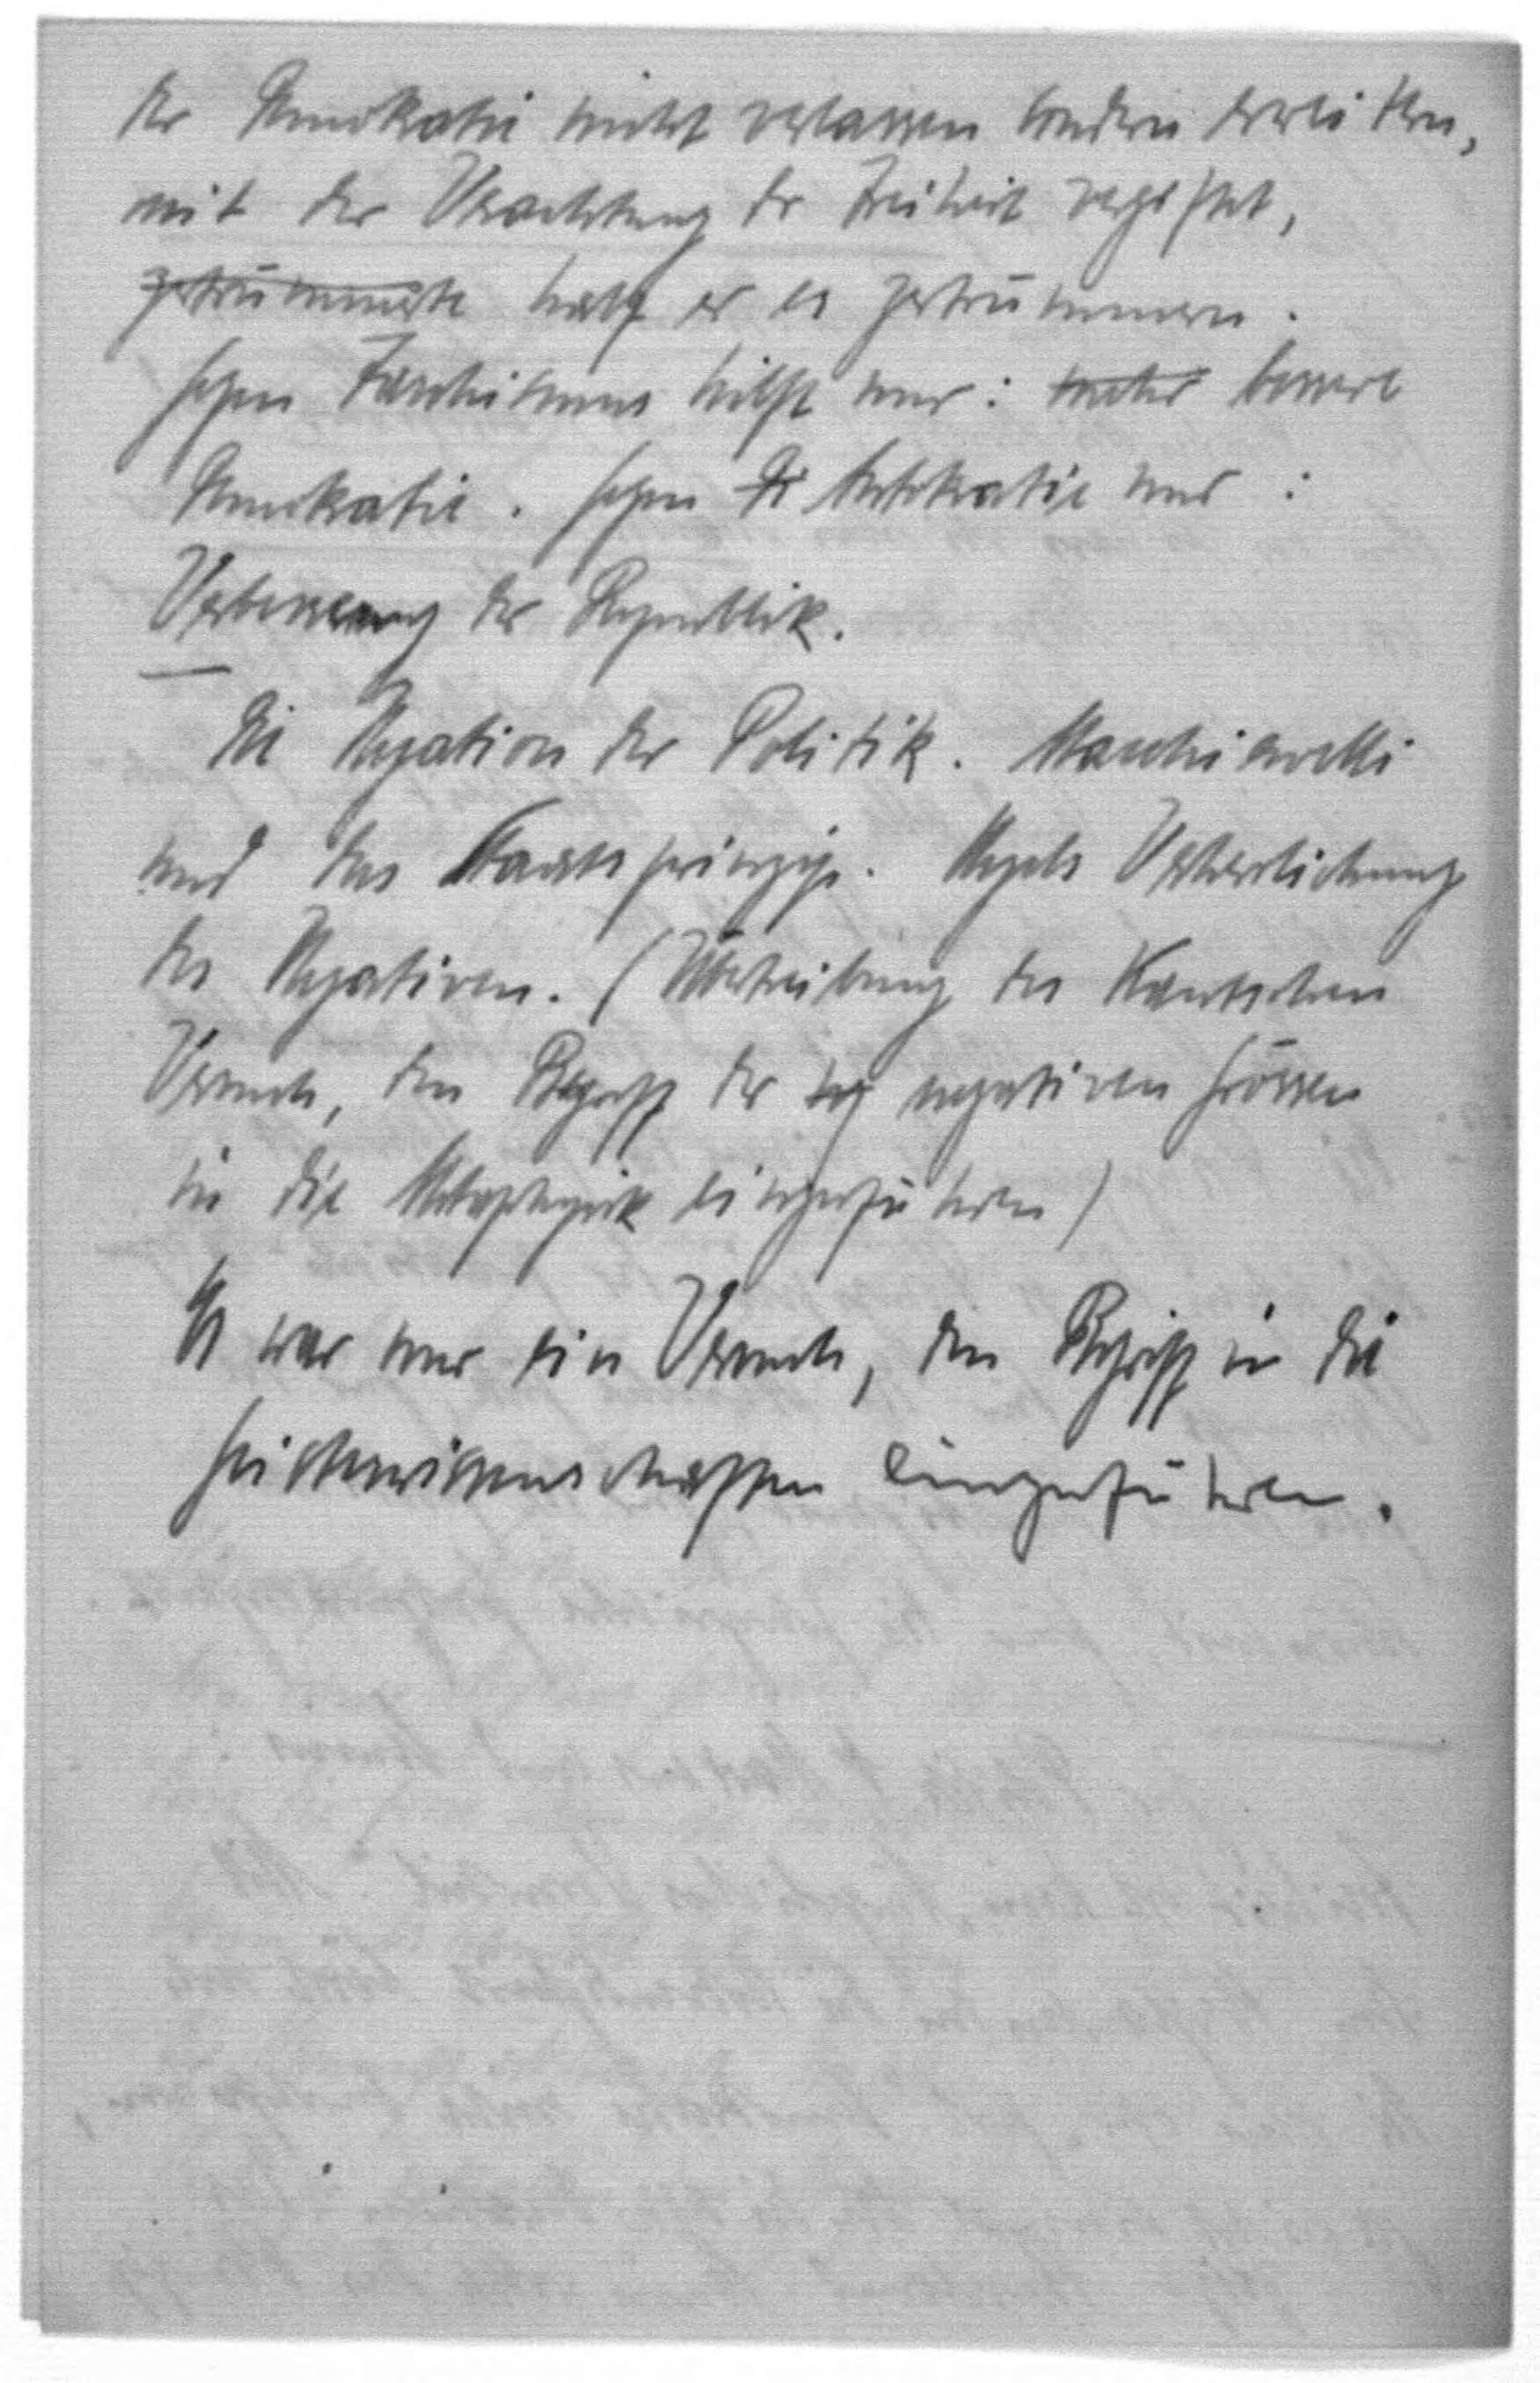 der Demokratie nicht verlassen sondern
mit der Verachtung der Freiheit vergiftet,
zertrümmerte half er es zertrümmern.
Gegen Faschismus hilft nur: mehr bessere
Demokratie. Gegen die Autokratie nur:
Verbesserung der Republik.
Die Negation der Politik. Macchiavelli
und das Staatsprinzip. Hegels Verherrlichung
des Negativen. (Übertreibung des Kantschen
Versuch, den Begriff der neg negativen Grössen
in die Metaphysik einzuführen)
Es war nur ein Versuch, den Begriff in die
Geisteswissenschaften einzuführen.